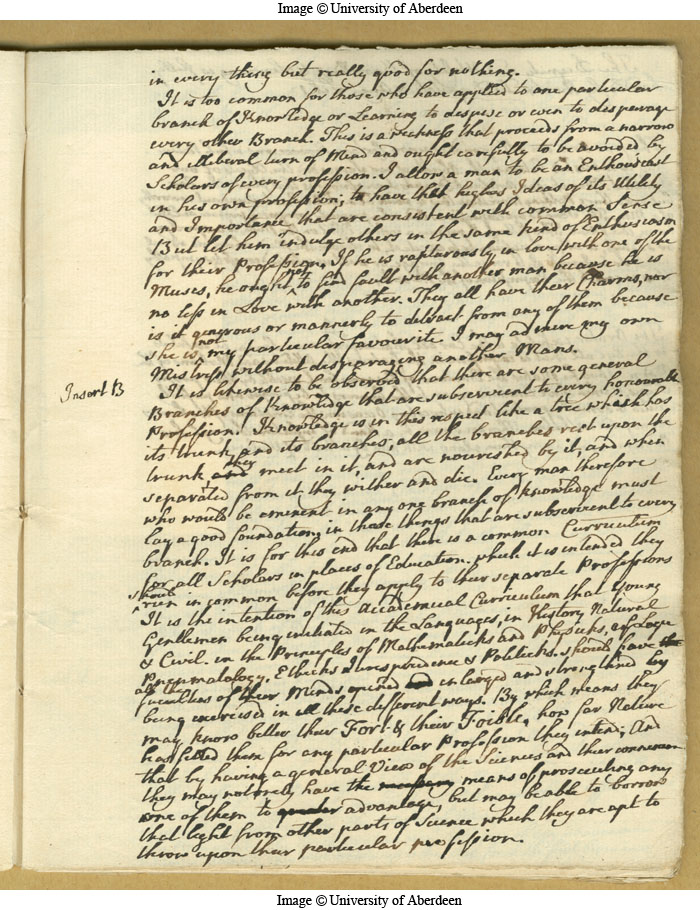 Image © University of Aberdeen
in every thing but really good for nothing.
It is too common for those who have applied to one particular
branch of Knowledge or Learning to despise or even to disparage
every other Branch. This is a that proceeds from a narrow
and illiberal turn of Mind and ought carefully to be avoided by
Scholars of every profession. I allow a man to be an Enthousiast
in his own profession; to have that highest Ideas of its Utility
and Importance that are consistent with common Sense
But let him indulge others in the same kind of Enthusiasm
for their Profession. If he is rapturously in love with one of the
Muses, he ought not to find fault with another man because he is
no less in Love with another. They all have their Charms, nor
is it generous or mannerly to detract from any of them because
she is not my particular favourite. I may admire my own
Mistress without disparaging another Mans.
Insert B
It is likewise to be observed that there are some general
Branches of Knowledge that are subservient to every honourable
Profession. Knowledge is in this respect like a tree which has
its trunk, and its branches; all the branches rest upon the
trunk, they meet in it, and are nourished by it, and when
separated from it they wither and die. Every man therefore
who would be eminent in any one branch of knowledge must
lay a good foundation, in those things that are subservient to every
branch. It is for this end that there is a common Curriculum
for all Scholars in places of Education. which it is intended they
should run in common before they apply to their separate Professions
It is the intention of this Academical Curriculum that Young
Gentlemen being initiated in the Languages, in History Natural
& Civil. in the Principles of Mathematicks and Physicks, of Logic
Pneumatology, Ethicks Jurisprudence & Politicks. should have
all the faculties of their Minds opened enlarged and strengthned by
being exercised in all these different ways. By which means they
may know better their Fort & their Foible, how far Nature
has fitted them for any particular Profession they intend; And
that by having a general View of the Sciences and their connexion
they may not only have the necessary means of prosecuting any
one of them to advantage, but may be able to borrow
that light from other parts of Science which they are apt to
throw upon their particular profession.
Image © University of Aberdeen